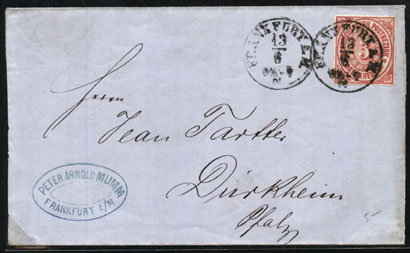 FRANKFURT A.M.
13
6
FRANKFURT A.M.
13
6
Herrn
Jean Tartter
Dürkheim
Pfalz
PETER ARNOLD MUMM
FRANKFURT A/M